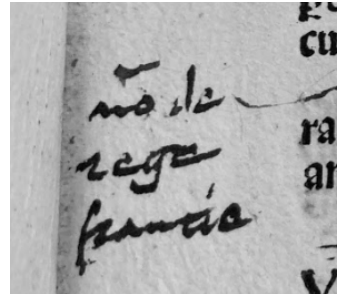 nō de
rege
francie
cu
ra
an
V